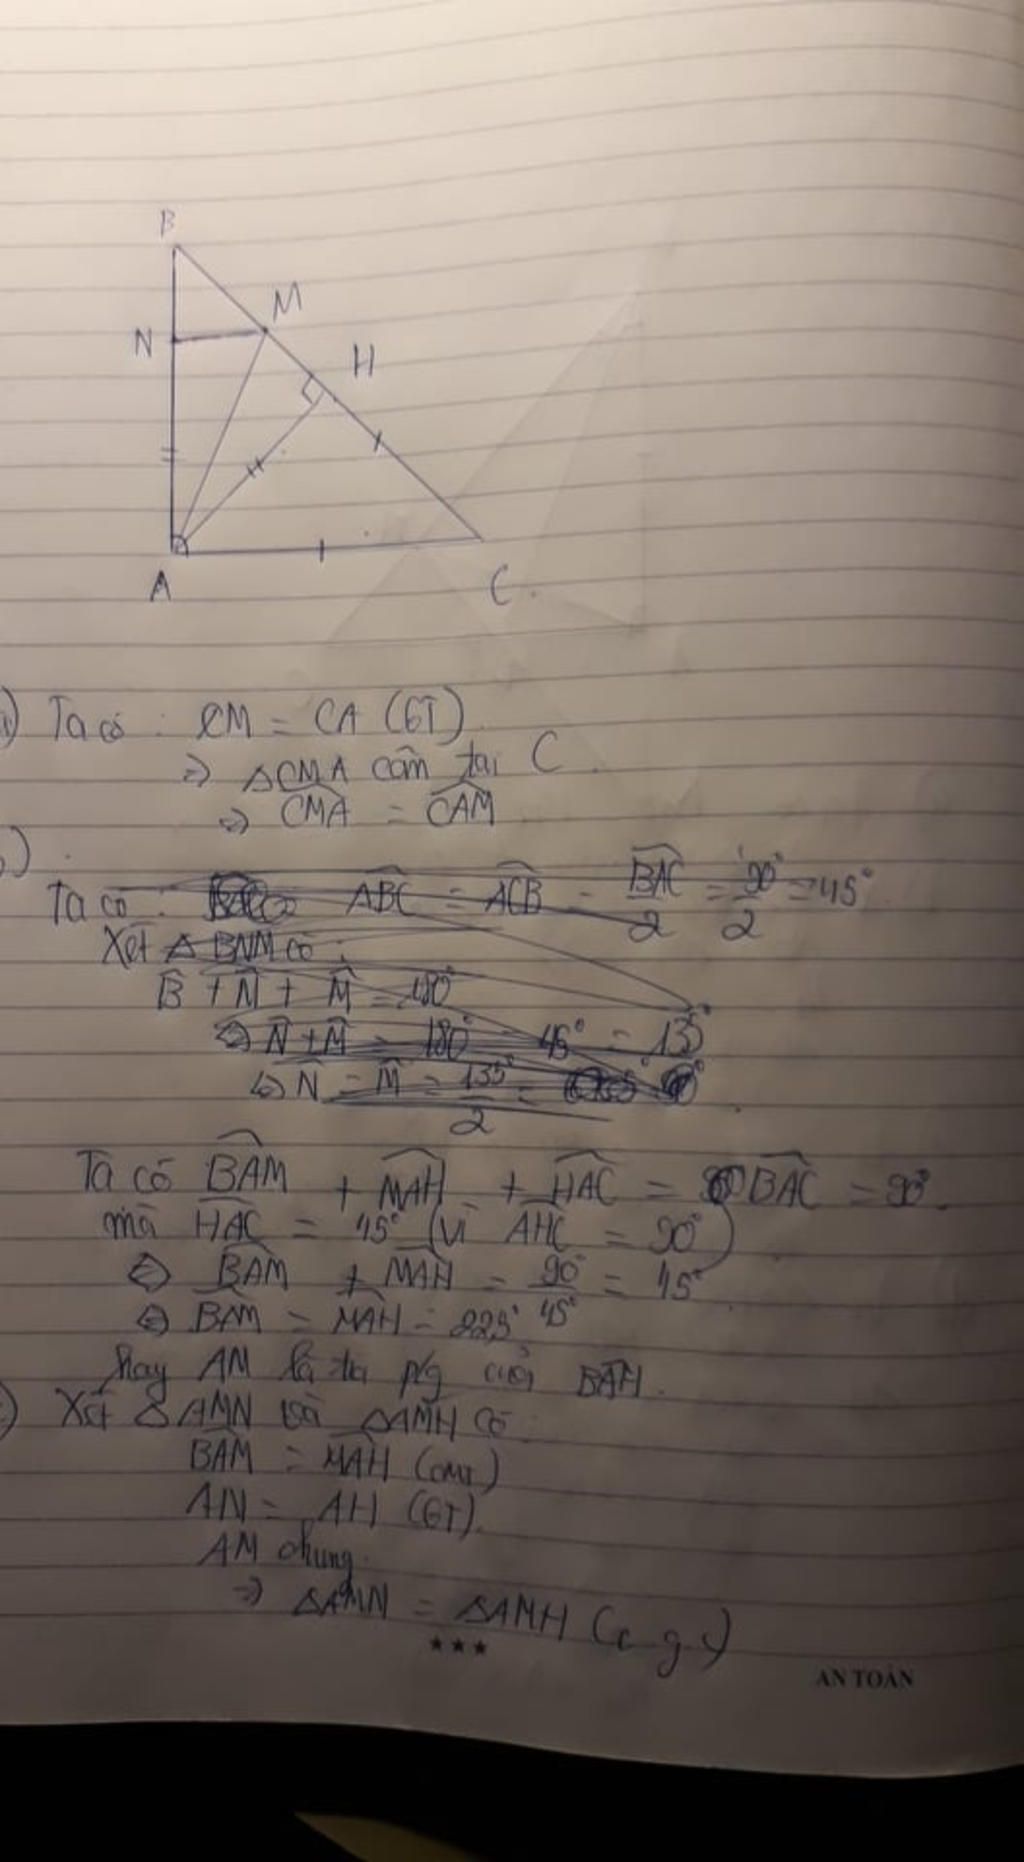 B
M
N
H
A
C
Ta có : CM = CA (GT)
=> ΔCMA cân tại C
=> CMA = CAM
Ta có : ABC = ACB = BAC/2 = 90°/2 = 45°
Xét Δ BNM có :
B + N + M = 180°
<=> N + M = 180° - 45° = 135°
<=> N = M = 135°/2 =
Ta có BAM + MAH + HAC = BAC = 90°
mà HAC = 45° (vì AHC = 90°)
<=> BAM + MAH = 90°/45° = 45°
<=> BAM = MAH = 22,5°
hay AM là tia p/g của BAH.
Xét Δ AMN và ΔAMH có
BAM = MAH (cmt)
AN = AH (GT)
AM chung
=> ΔAMN = ΔAMH (c g c)
★★★
AN TOÀN